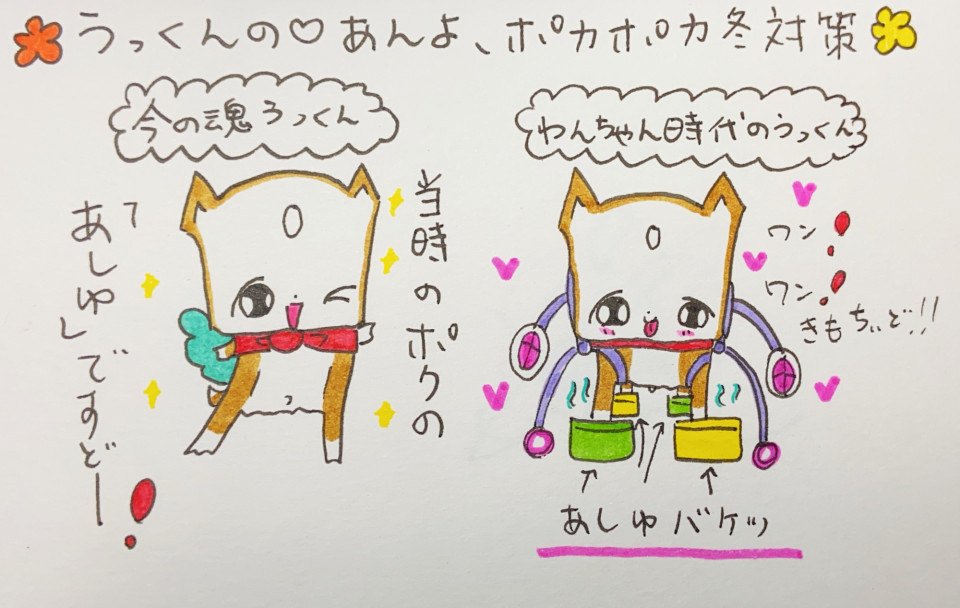 うっくんの♡あんよ、ポカポカ冬対策
今の魂うっくん
当時のボクの
「あしゆ」ですどー!
わんちゃん時代のうっくん
ワン!
ワン!
きもちぃど!!
あしゆバケツ